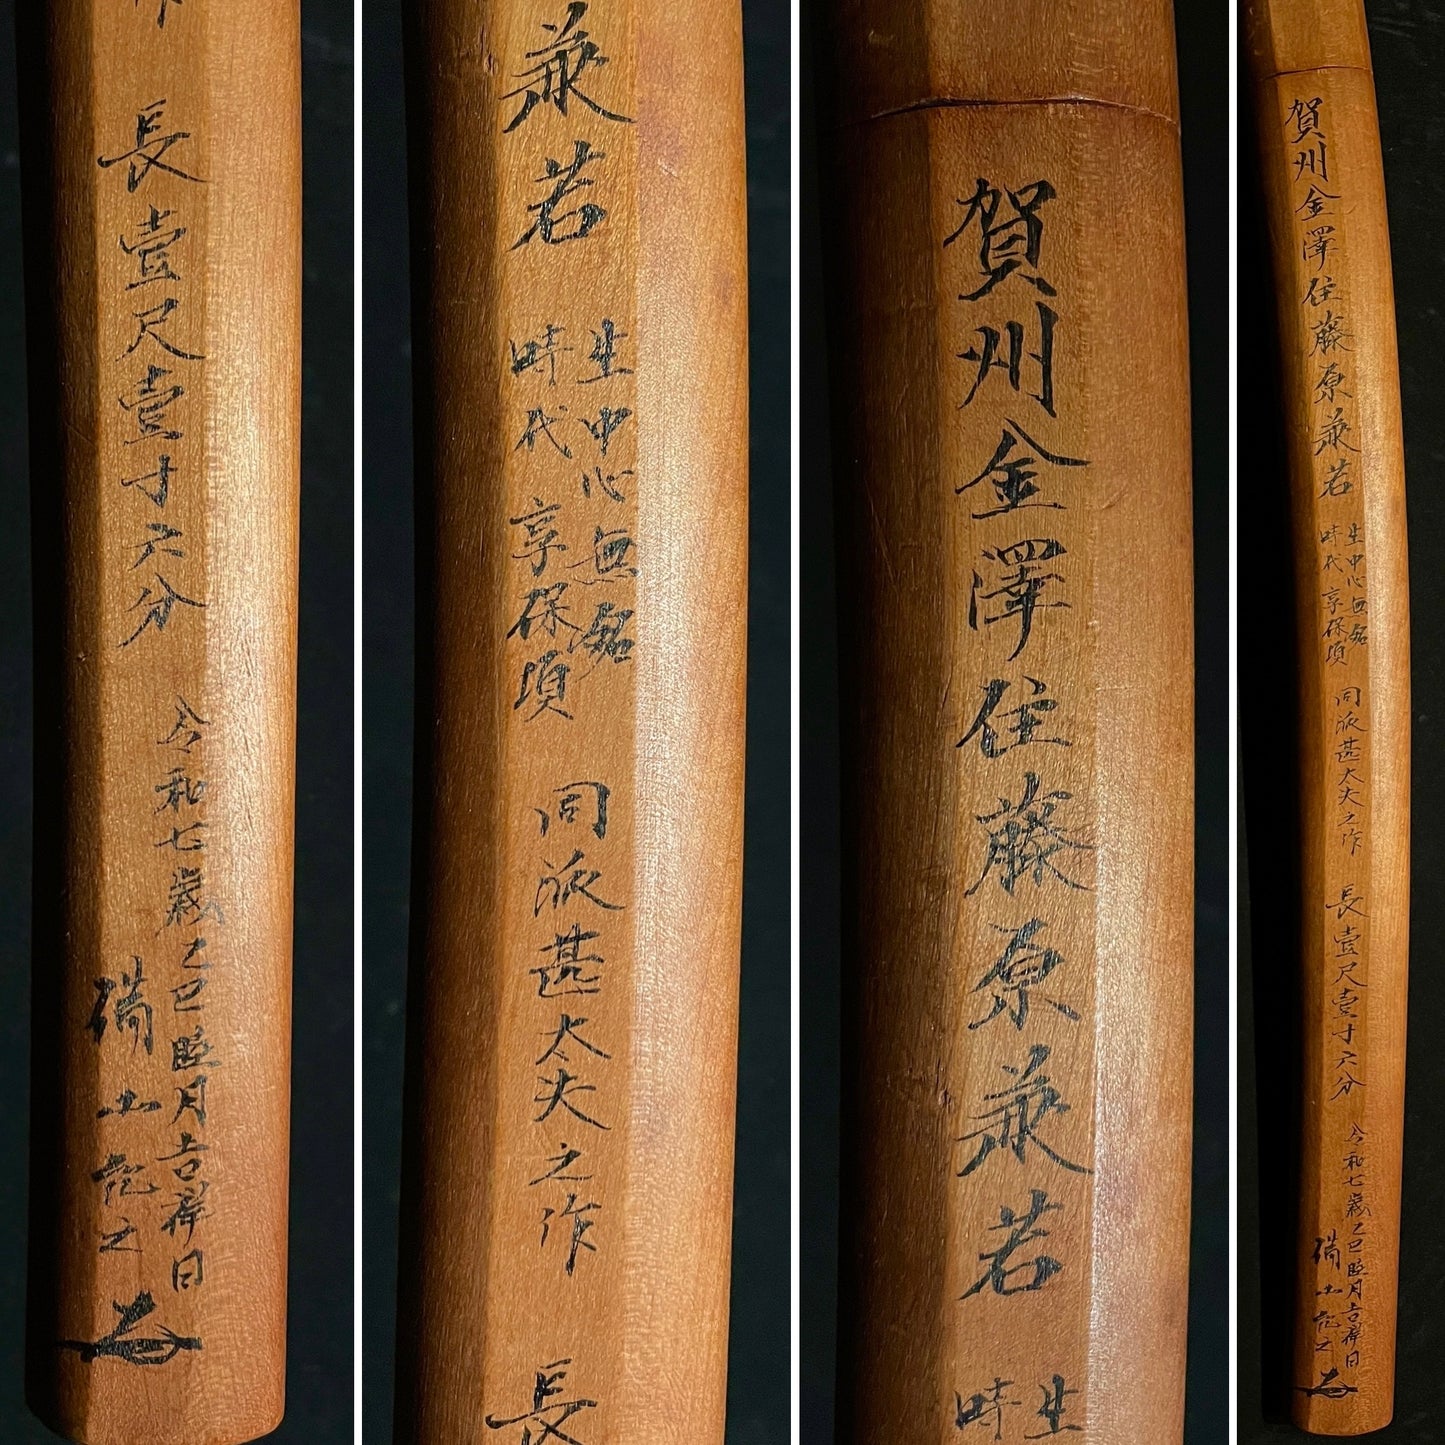 賀州金澤住藤原兼若
生中心無銘
時代享保頃
同派甚太夫之作
長壹尺壹寸六分
令和七歳乙巳睦月吉祥日
賀州金澤住藤原兼若
生
時
兼若
生中心無銘
時代享保頃
同派甚太夫之作
長
長壹尺壹寸六分
令和七歳乙巳睦月吉祥日